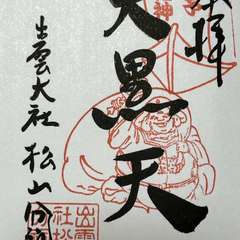 奉拝
大黒天
出雲大社 松山分祠
出雲
社松